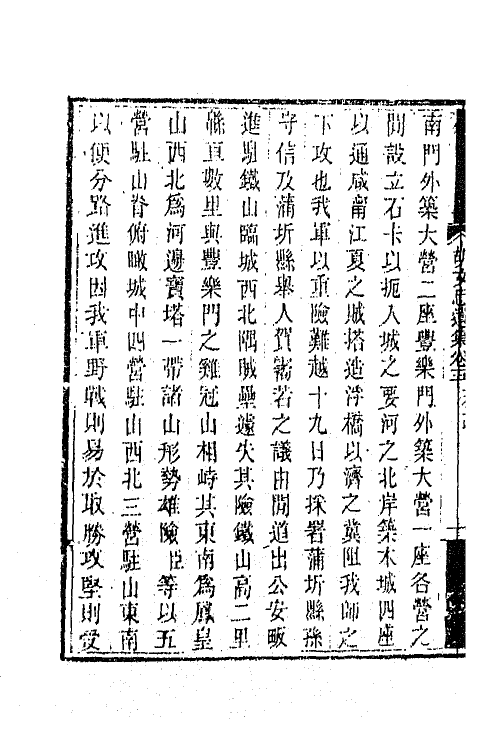 南門外築大營二座豐樂門外築大營一座各營之
間設立石卡以扼入城之要河之北岸築木城四座
以通咸甯江夏之賊塔造浮橋以濟之冀阻我師之
下攻也我軍以重險難越十九日乃採署蒲圻縣孫
守信及蒲圻縣舉人賀霱若之議由間道出公安畈
進駐鐵山臨城西北隅賊壘遂失其險鐵山高二里
緜亘數里與豐樂門之雞冠山相峙其東南爲鳳皇
山西北爲河邊寶塔一帶諸山形勢雄險臣等以五
營駐山脊俯瞰城中四營駐山西北三營駐山東南
以便分路進攻因我軍野戰則易於取勝攻堅則受